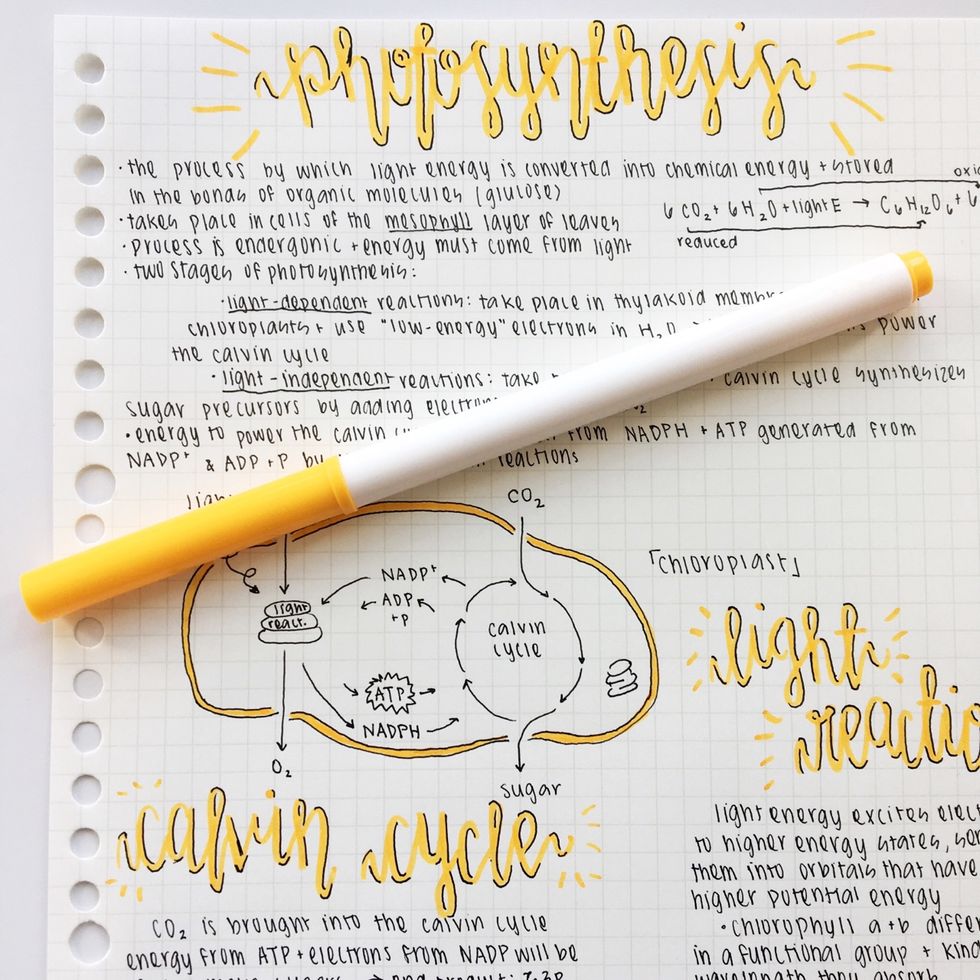 photosynthesis
· the process by which light energy is converted into chemical energy + stored
in the bonds of organic molecules (glulose)
· takes place in cells of the mesophyll layer of leaves
· process is endergonic + energy must come from light
· two stages of photosynthesis:
6 CO₂ + 6 H₂O + light E → C₆H₁₂O₆ + 6
reduced
· light-dependent reactions: take place in thylakoid
chloroplasts + use "low-energy" electrons in H₂O power
the calvin cycle
· light-independent reactions: take · calvin cycle synthesizes
sugar precursors by adding
· energy to power the calvin from NADPH + ATP generated from
NADP⁺ & ADP + P by reactions
CO₂
「chloroplast」
NADP⁺
ADP
+P
light
react.
calvin
cycle
ATP
NADPH
O₂
sugar
light
calvin cycle
light energy excites
to higher energy states,
them into orbitals that have
higher potential energy
· chlorophyll a+b
in a functional group +
CO₂ is brought into the calvin cycle
energy from ATP + electrons from NADP will be